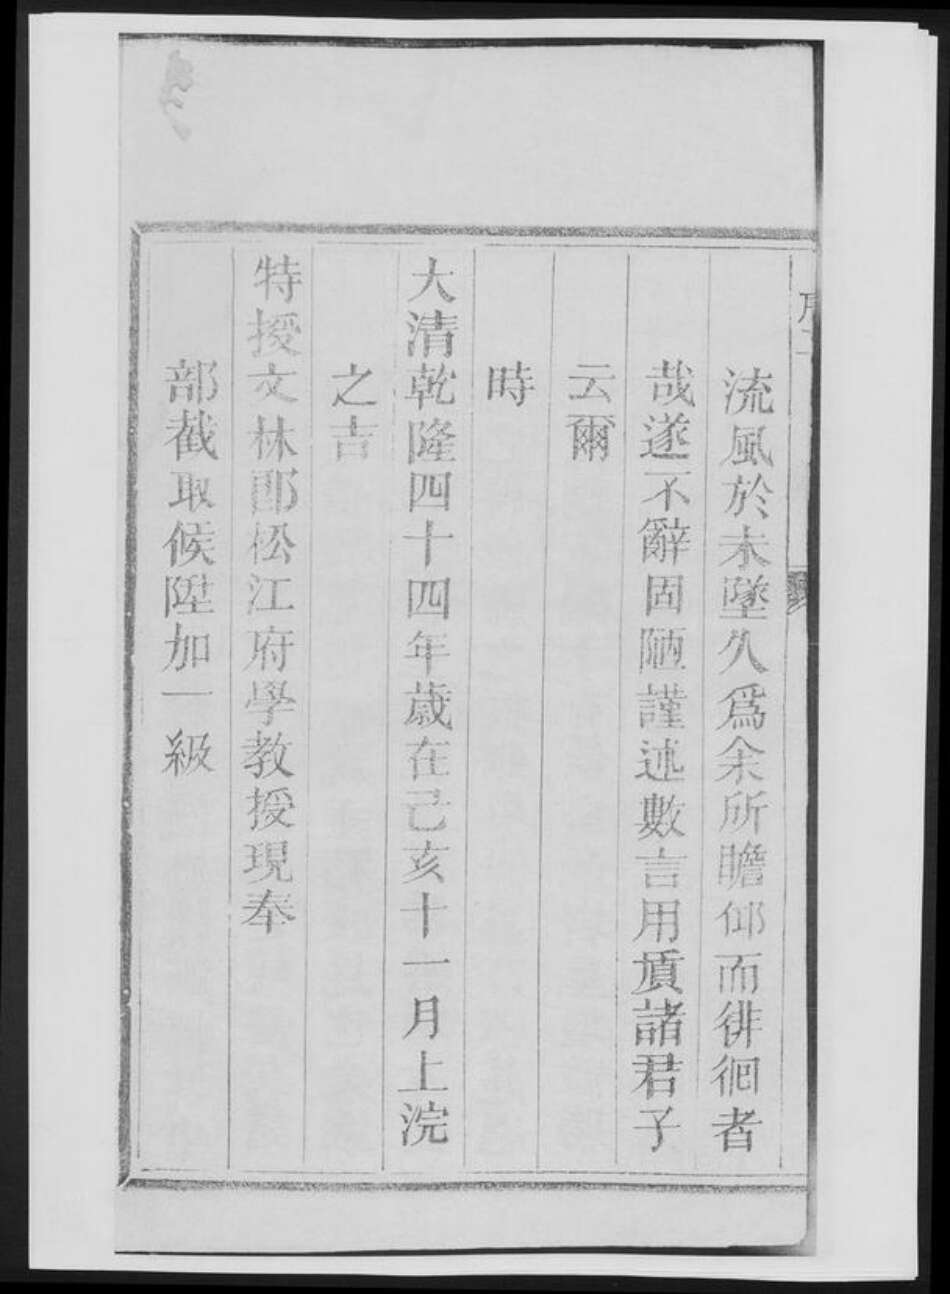 流風於未墜久爲余所瞻仰而徘徊者
哉遂不辭固陋謹述數言用質諸君子
云爾
時
大清乾隆四十四年歲在己亥十一月上浣
之吉
特授文林郎松江府學教授現奉
部截取候陞加一級